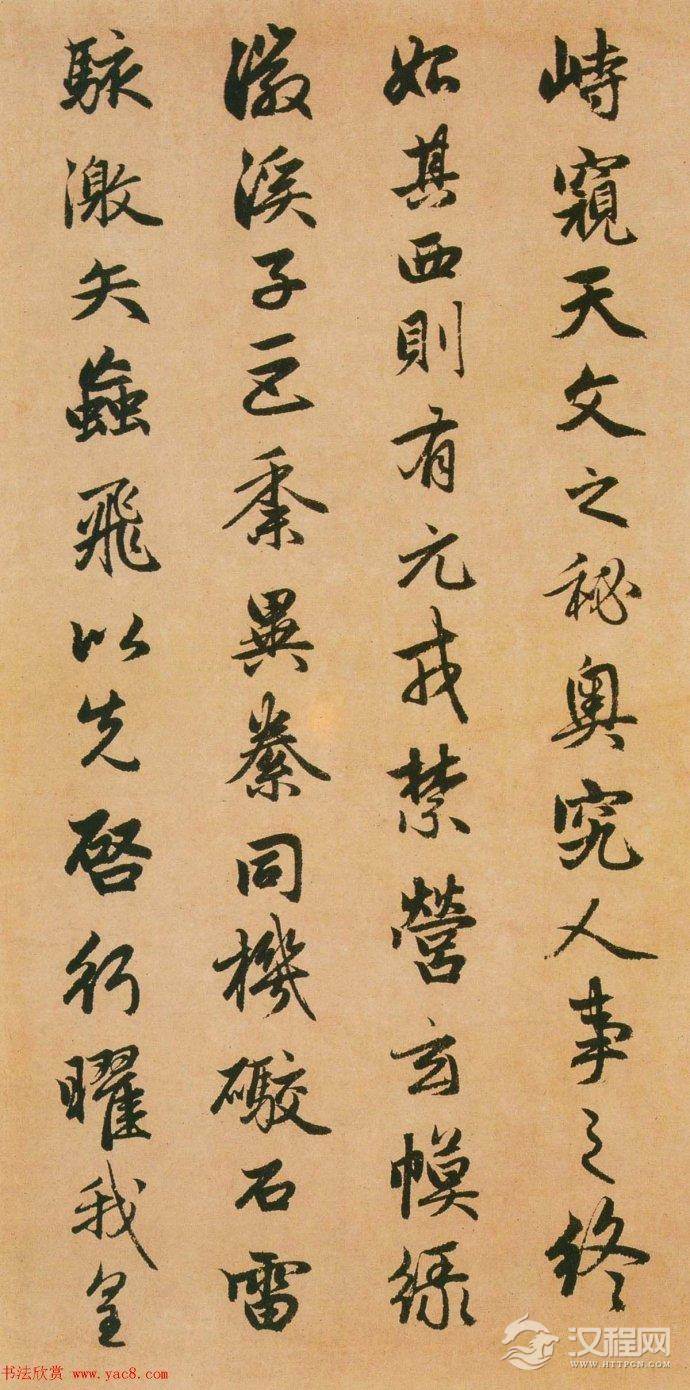 峙窺天文之秘奧究人事之終
始其西則有元戎禁營玄幙緑
徽溪子巨黍異絭同機礮石雷
駭激矢蝱飛以先啓行曜我皇
书法欣赏 www.yac8.com
汉程网
WWW.HTTPCN.COM